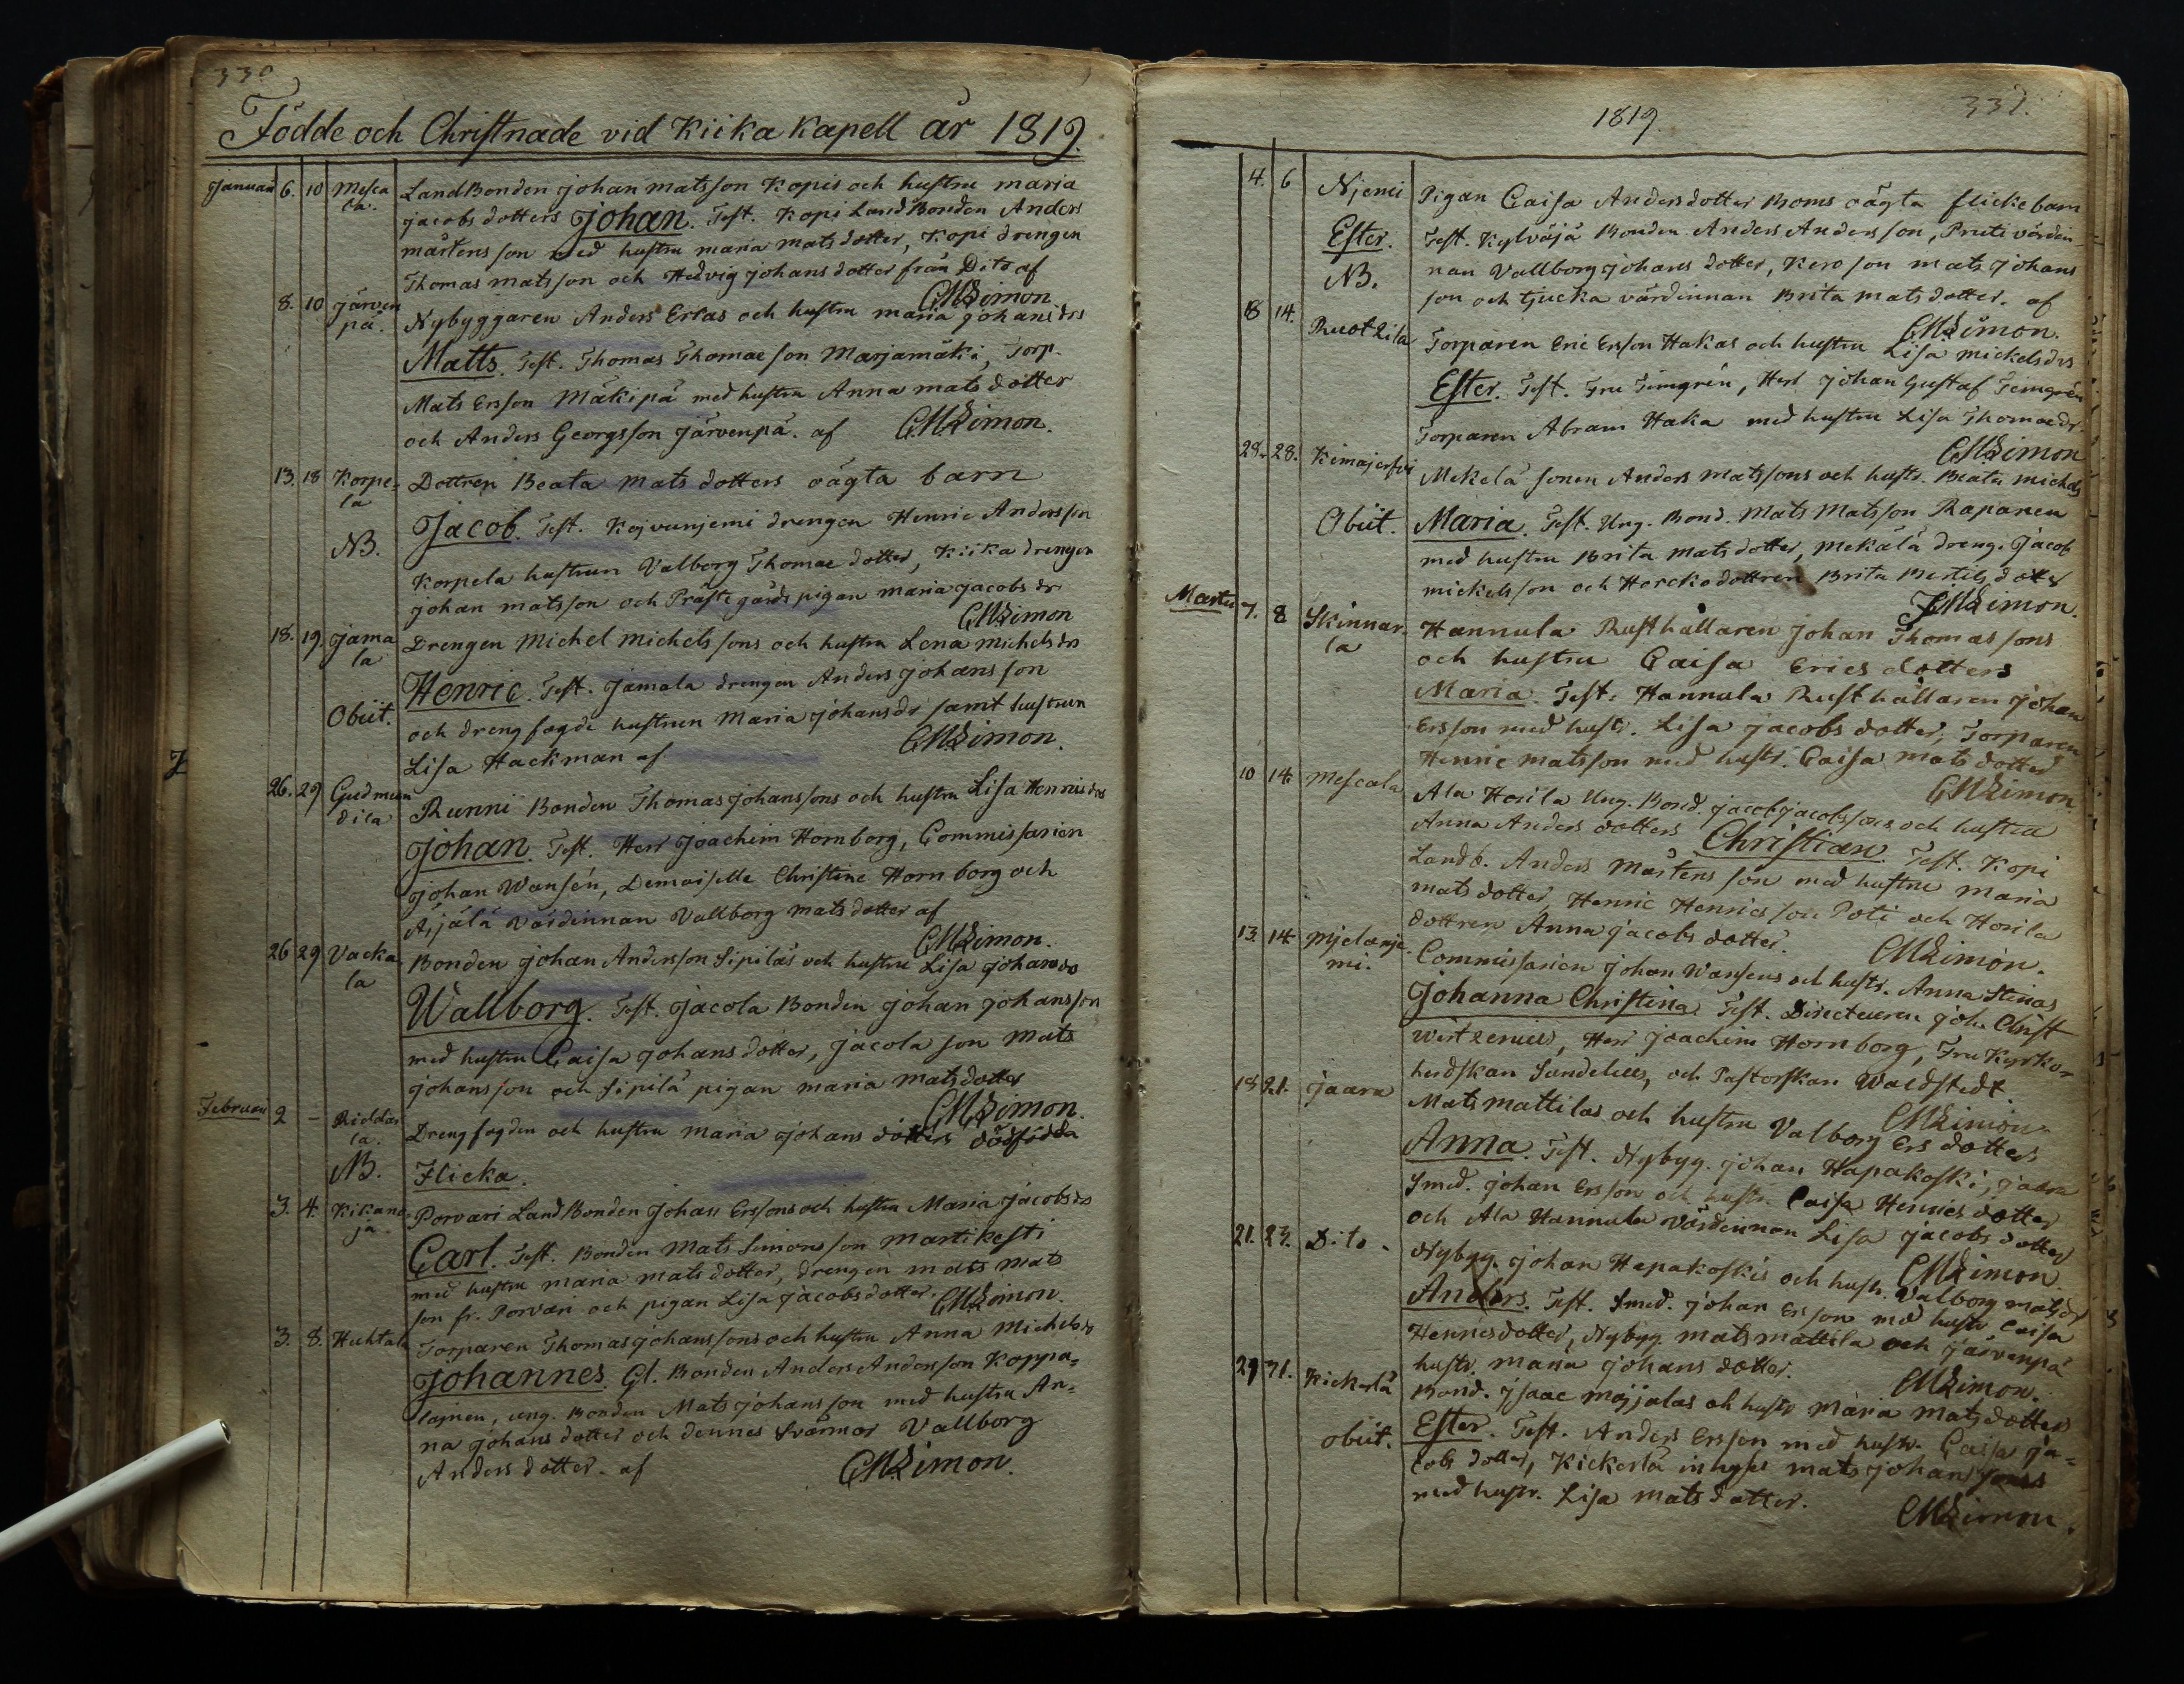 330
Födde och Christnade vid Kiika Kapell år 1819.
Januari 6. 10 Mesca
la.
LandBonden Johan matsson Kopis och hustru maria
Jacobs dotters Johan. Test. Kopi LandBonden Anders
mårtensson med hustru maria mats dotter, Kopi drengen
Thomas matsson och Hedvig Johans dotter från Dito af
CMLimon
8. 10 Järven
pä.
Nybyggaren Anders Erlas och hustru maria Johansdrs
Matts. Test. Thomas Thomae son Marjamäki, Torp.
Mats Ersson Mäkipä med hustru Anna mats dotter
och Anders Georgsson Järvenpä. af CMLimon.
13. 18 Korpe=
la
NB.
Dottren Beata mats dotters oägta barn
Jacob. Test. Kojvunjemi drengen Henric Andersson
Korpela hustrun Valborg Thomae dotter, Kiika drengen
Johan matsson och Prästegårds pigan maria Jacobs dr
CMLimon
18. 19 Jama
la
Obiit.
Drengen Michel michelssons och hustru Lena michelsdrs
Henric. Test. Jamala drengen Anders Johansson
och dreng fogde hustrun Maria Johansdr samt hustrun
Lisa Hackman af CMLimon.
26. 29 Gudmun
dila
Runni Bonden Thomas Johanssons och hustru Lisa Henricsdrs
Johan. Test. Herr Joachim Hornborg, Commissarien
Johan Wansén, Demoiselle Christine Hornborg och
Äijälä Värdinnan Vallborg mats dotter af
CMLimon.
26 29 Vacka
la
Bonden Johan Andersson Sipiläs och hustru Lisa Johansdrs
Wallborg. Test. Jacola Bonden Johan Johansson
med hustru Caisa Johans dotter, Jacola son Mats
Johansson och Sipilä pigan maria matsdotter
CMLimon.
Februari 2 – Riddar
la.
NB.
Drengfogden och hustru maria Johans dotters dödfödda
Flicka.
3. 4. Kikano
ja.
Porvari LandBonden Johan Erssons och hustru Maria Jacobsdrs
Carl. Test. Bonden Mats Simonsson Martikesti
med hustru maria mats dotter, drengen mats mats
son fr. Porvari och pigan Lisa Jacobsdotter. CMLimon.
3. 8. Huhtala
Torparen Thomas Johanssons och hustru Anna Michelsdrs
Johannes. Gl. Bonden Anders Andersson Koppa=
lainen, ung. Bonden Mats Johansson med hustru An=
na Johans dotter och dennes Svärmor Vallborg
Anders dotter. af CMLimon.
1819.
331.
4. 6 Njemi
Ester.
NB.
Pigan Caisa Andersdotter Roms oägta flickebarn
Test. Kylväjä Bonden Anders Andersson, Pruti värdin
nan Vallborg Johans dotter, Kero son mats Johans
son och tjucka värdinnan Brita mats dotter. af
CMLimon.
18 14. Ruotzila
Torparen Eric Ersson Hakas och hustru Lisa mickelsdrs
Ester. Test. Fru Temgrén, Herr Johan Gustaf Temgrén
Torparen Abram Haka med hustru Lisa Thomaedr.
CMLimon
28. 28. Kimajerfvi
Obiit.
Mekelä sonen Anders matssons och hustr. Beata michels
Maria. Test. Ung. Bond. Mats Matsson Rapanen
med hustru Brita mats dotter, Mekälä dreng. Jacob
mickelsson och Horckodottren Brita Bertilsdotter
CMLimon.
Martii 7. 8 Skinnar
la
Hannula Rusthållaren Johan Thomassons
och hustru Caisa Erics dotters
Maria. Test. Hannula Rusthållaren Johan
Ersson med hustr. Lisa Jacobs dotter, Torparen
Henric matsson med hustr. Caisa mats dotter
CMLimon.
10 14 Mescala
Ala Horila Ung. Bond. Jacob Jacobssons och hustru
Anna Anders dotters Christian. Test. Kopi
Landb. Anders Mårtensson med hustru maria
mats dotter, Henric Henricsson Poti och Horila
dottren Anna Jacobs dotter. CMLimon.
13. 14 Mjelonje
mi.
Commissarien Johan Wansens och hustr. Anna Stinas
Johanna Christina Test. Directeuren Joh. Christ
Wirtzenius, Herr Joachim Hornborg, Fru Kyrko=
herdskan Sundelius, och Pastorskan Waldstedt.
CMLimon
18 21. Jaara
Mats Mattilas och hustru Valborg Ers dotters
Anna. Test. Nybyg. Johan Hapakoski, Jaara
Smed. Johan Ersson och hustr. Caisa Henrics dotter
och Ala Hannula Värdinnan Lisa Jacobs dotter
CMLimon.
21. 23. Dito.
Nybyg. Johan Hapakoskis och hustr. Valborg matsdr
Anders. Test. Smed. Johan Ersson med hustr Caisa
Henricsdotter, Nybyg. mats mattila och Järvenpä
hustr. maria Johans dotter. CMLimon.
29 31. Kickerlä
obiit.
Bond. Isaac mojjalas och hustr maria matsdotters
Ester. Test. Anders Ersson med hustr. Caisa Ja=
cobs dotter, Kickerlä inhyses mats Johansson
med hustr. Lisa mats dotter.
CMLimon.